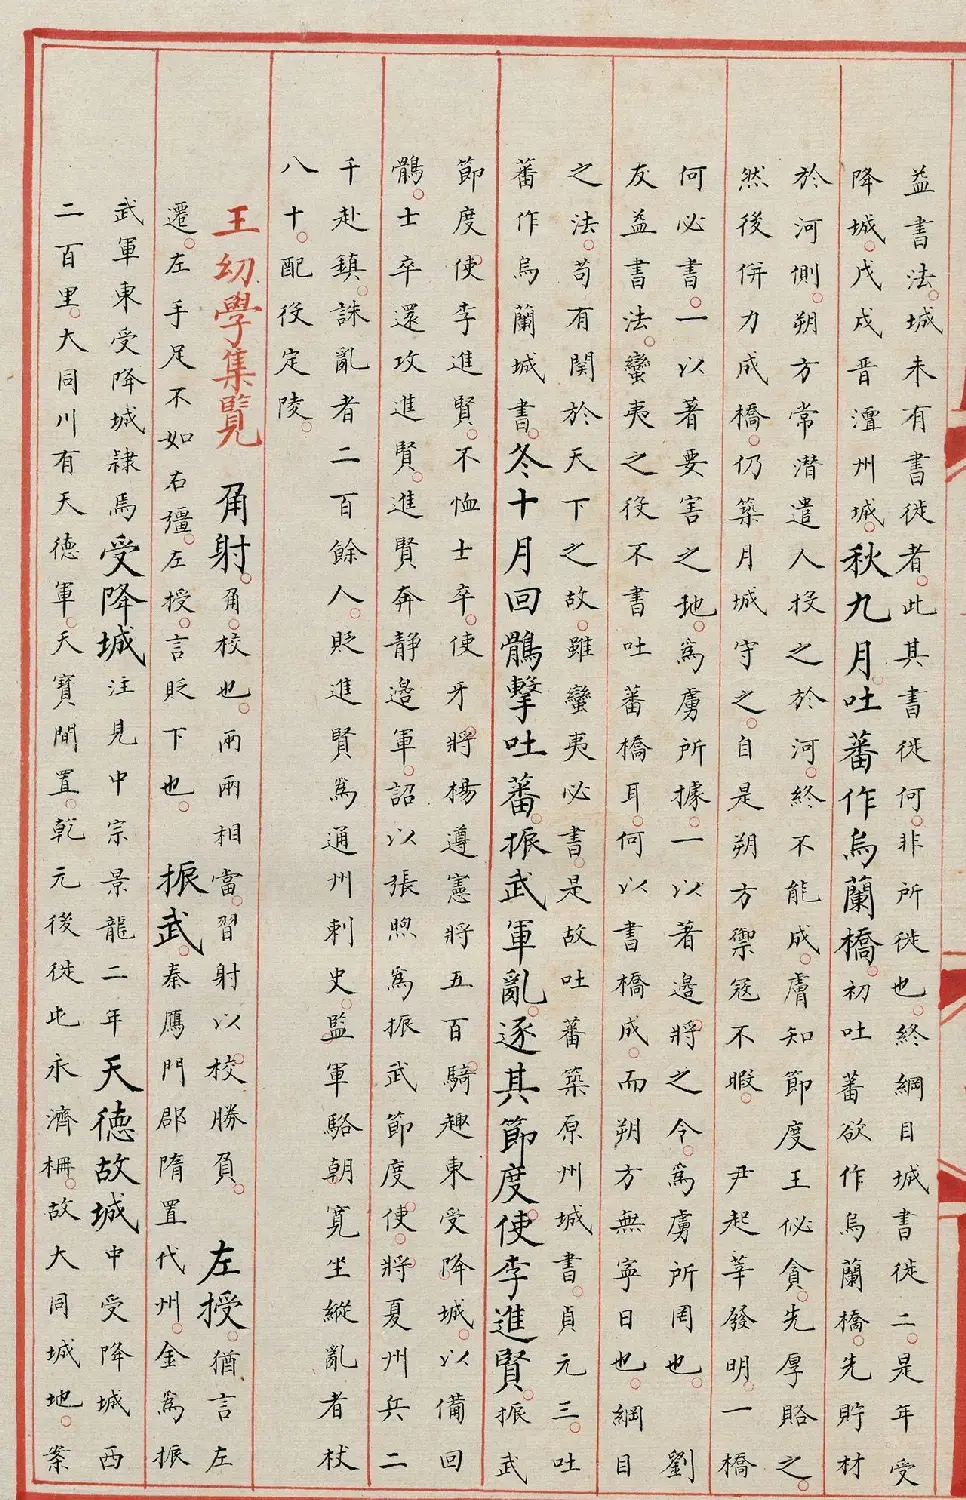 益書法。城未有書徙者。此其書徙何。非所徙也。終綱目城書徙二。是年受
降城。戊戌晉澶州城。秋九月。吐蕃作烏蘭橋。初吐蕃欲作烏蘭橋。先貯材
於河側。朔方常潛遣人投之於河。終不能成。虜知節度王佖貪。先厚賂之。
然後併力成橋。仍築月城守之。自是朔方禦寇不暇。 尹起莘發明。一橋
何必書。一以著要害之地。為虜所據。一以著邊將之令。為虜所罔也。 劉
友益書法。蠻夷之役不書吐蕃橋耳。何以書橋成。而朔方無寧日也。綱目
之法。苟有関於天下之故。雖蠻夷必書。是故吐蕃築原州城書。貞元三。吐
蕃作烏蘭城書。冬十月回鶻擊吐蕃。振武軍亂。逐其節度使李進賢。振武
節度使李進賢。不恤士卒。使牙將楊遵憲將五百騎趣東受降城。以備回
鶻。士卒還攻進賢。進賢奔靜邊軍。詔以張煦為振武節度使。將夏州兵二
千赴鎮。誅亂者二百餘人。貶進賢為通州刺史。監軍駱朝寬坐縱亂者杖
八十。配役定陵。
王幼學集覽 角射。角。校也。兩兩相當。習射以校勝負。 左授。猶言左
遷。左手足不如右彊。左授。言貶下也。 振武。秦鴈門郡隋置代州。金為振
武軍東受降城隸焉受降城注見中宗景龍二年天德故城中受降城西
二百里。大同川有天德軍。天寶間置。乾元後徙屯永濟柵。故大同城地。案